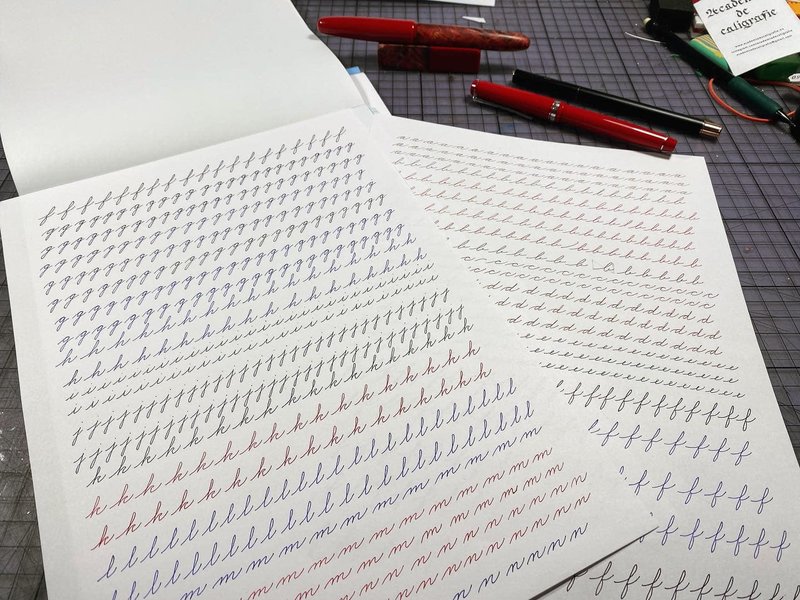 Academia
de
caligrafie
f f f f f f f f f f f f f f f f f f
g g g g g g g g g g g g g g g g g g
g g g g g g g g g g g g g g g g g g
g g g g g g g g g g g g g g g g g g
g g g g g g g g g g g g g g g g g g
g g g g g g g g g g g g g g g g g g
g g g g g g g g g g g g g g g g g g
h h h h h h h h h h h h h h h h
h h h h h h h h h h h h h h h h
i i i i i i i i i i i i i i i i i i
i i i i i i i i i i i i i i i i i i
j j j j j j j j j j j j j j j j j j j j
j j j j j j j j j j j j j j j j j j j j
k k k k k k k k k k k k k k k
k k k k k k k k k k k k k k k
k k k k k k k k k k k k k k k
l l l l l l l l l l l l l l l l l l l l
l l l l l l l l l l l l l l l l l l l l
m m m m m m m m m m m m
m m m m m m m m m m
m m m m m m m m
n n n n n n n n
n n n n n
a a a a a a a a a a a a a a a a
a a a a a a a a a a a a a a a a
a a a a a a a a a a a a a a a a
b b b b b b b b b b b b b b b b
b b b b b b b b b b b b b b b b
b b b b b b b b b b b b b b b
b b b b b b b b b b b b b b
b b b b b b b b b b b b b
c c c c c c c c c c c c c c
c c c c c c c c c c c c c c
d d d d d d d d d d d
d d d d d d d d d d d
d d d d d d d d d d
e e e e e e e e e e e e
e e e e e e e e e e e e
e e e e e e e e e e e
f f f f f f f f f f
f f f f f f f
f f f f f f
f f f f f f
f f f f f